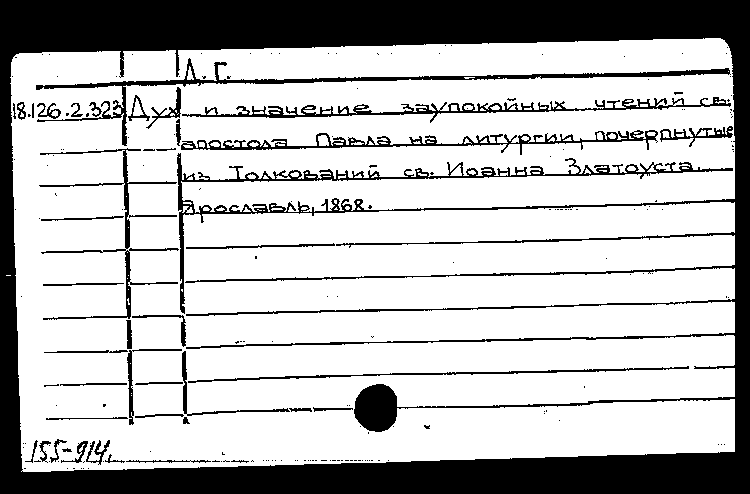 Д. Г.
18.126.2.323 Дух и значение заупокойных чтений св.
апостола Павла на литургии, почерпнутые
из Толкований св. Иоанна Златоуста.
Ярославль, 1868.
155-914.